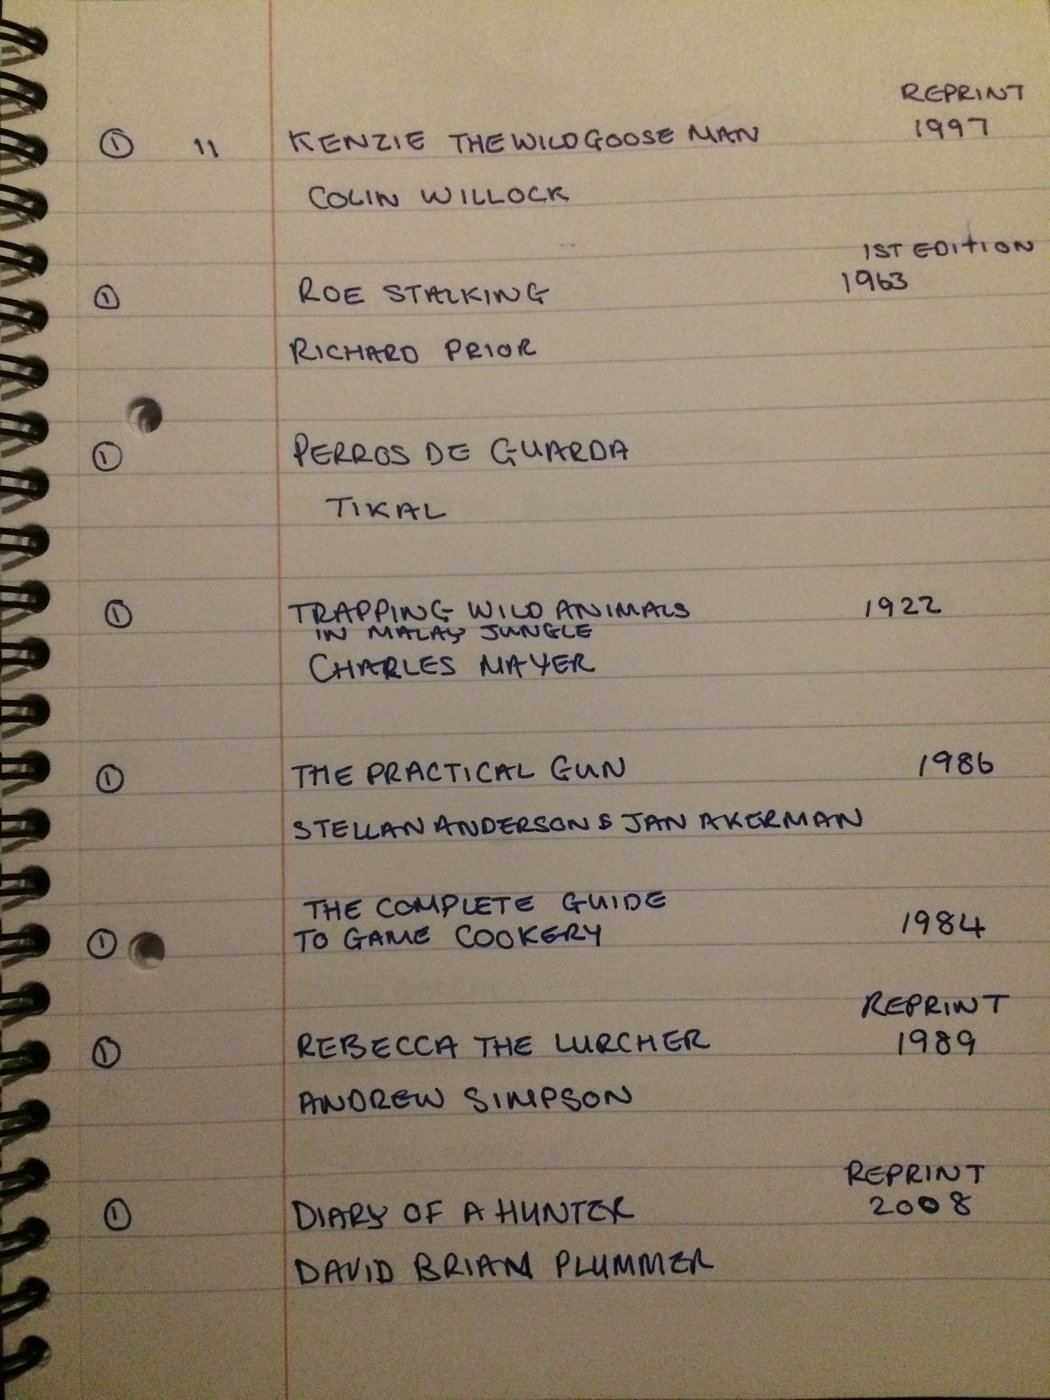 REPRINT
① 11 KENZIE THE WILD GOOSE MAN 1997
COLIN WILLOCK
1ST EDITION
① ROE STALKING 1963
RICHARD PRIOR
① PERROS DE GUARDA
TIKAL
① TRAPPING WILD ANIMALS 1922
IN MALAY JUNGLE
CHARLES MAYER
① THE PRACTICAL GUN 1986
STELLAN ANDERSON & JAN AKERMAN
THE COMPLETE GUIDE
① TO GAME COOKERY 1984
REPRINT
① REBECCA THE LURCHER 1989
ANDREW SIMPSON
REPRINT
① DIARY OF A HUNTER 2008
DAVID BRIAN PLUMMER